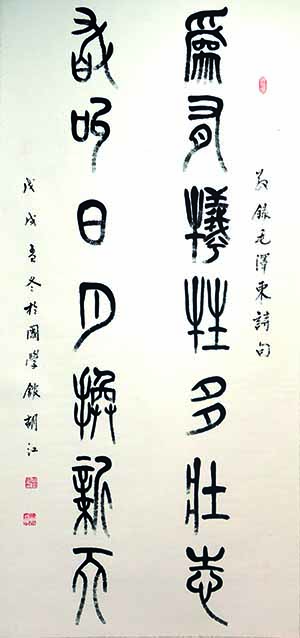 錄毛澤東詩句
爲有犧牲多壯志
敢叫日月換新天
戊戌孟冬於國學館胡江